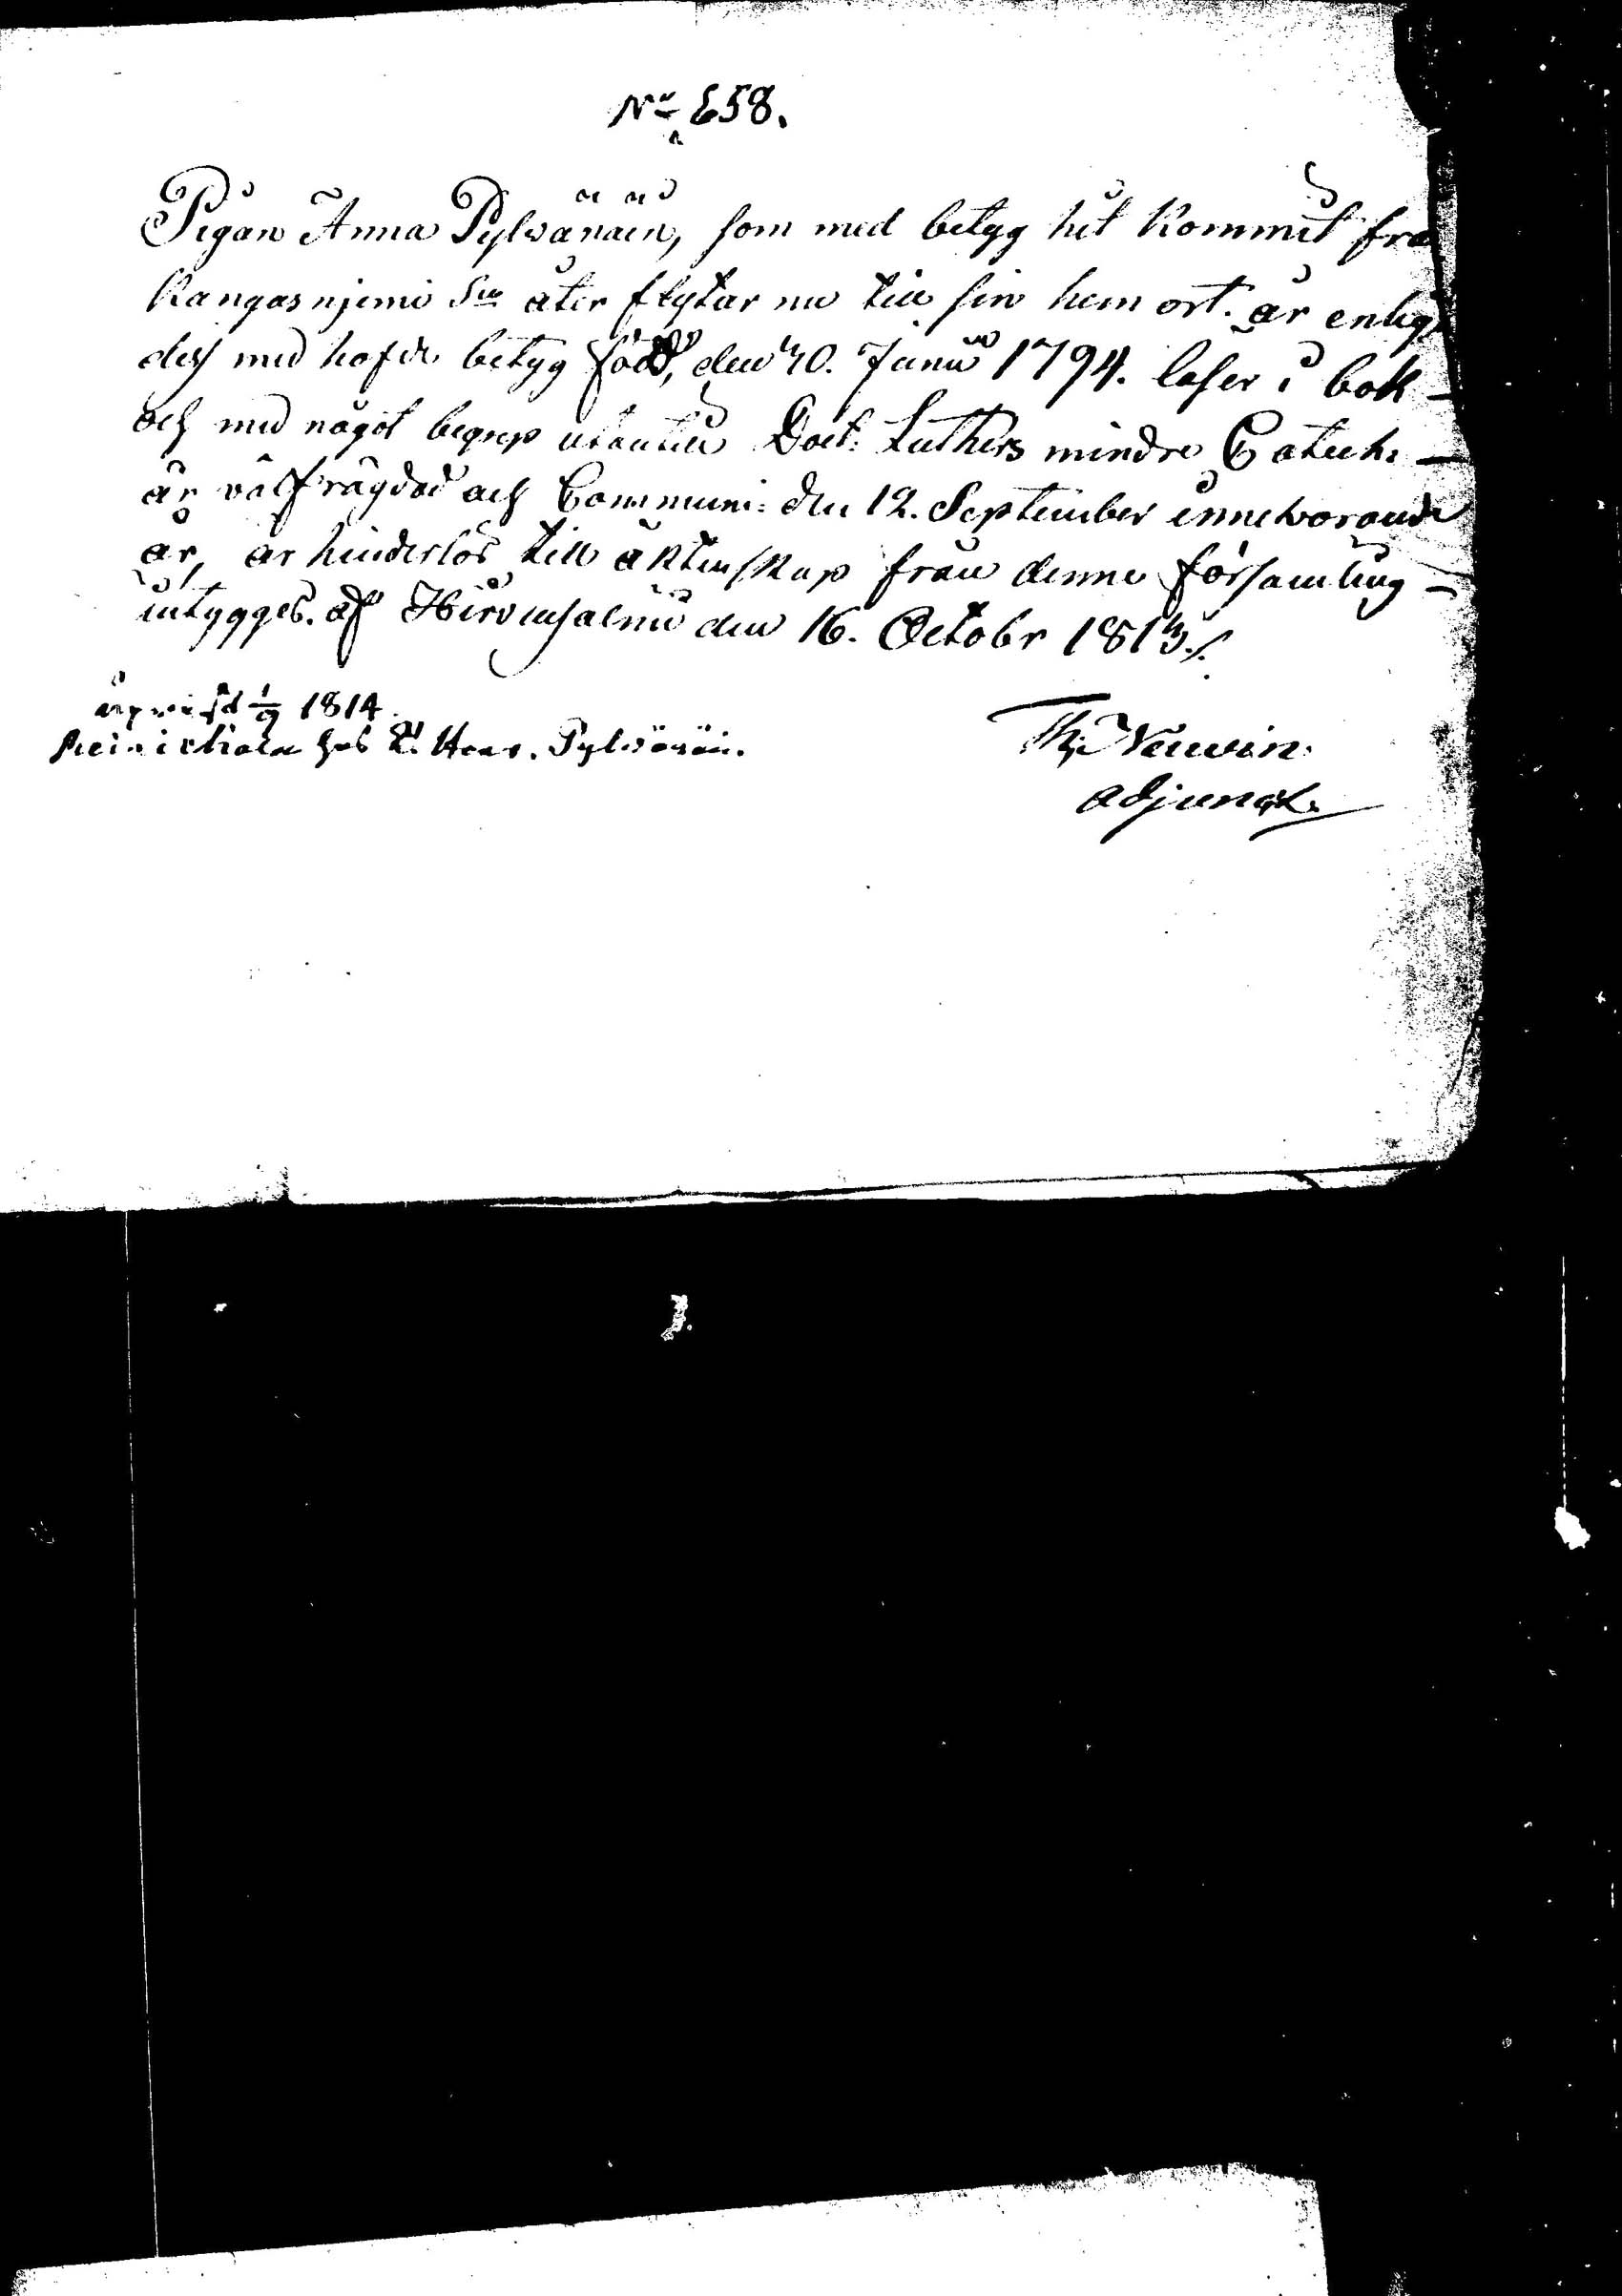 No 658.
Pigan Anna Pylvänäin, som med betyg hit kommit frå
Kangasnjemi Sn åter flytar nu till sin hem ort. är enligt
des med hafde betyg född, den 30. Junii 1794. läser i bok
och med något begrep utantill Doct. Luthers mindre Catech.
är välfrägdad och Communi: den 12. September innevarande
år, är hinderlös till äktenskap från denne församling
intygges. af Hirvensalmi den 16. Octobr 1813./.
upvisd 1/9 1814
hos Pylvänäin.
Neuvin
adjunct.